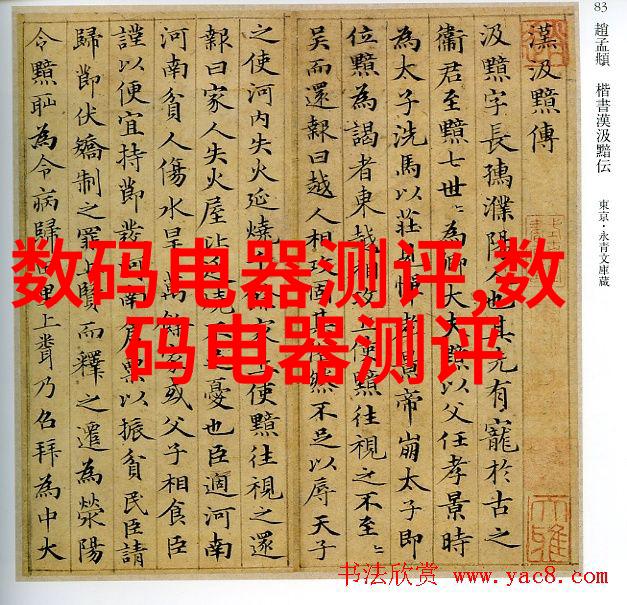 83
趙孟頫 楷書漢汲黯伝
東京・永青文庫蔵
漢汲黯傳
汲黯字長孺濮陽人也其先有寵於古之
衞君至黯七世〻為卿大夫黯以父任孝景時
為太子洗馬以莊見憚孝景帝崩太子即
位黯為謁者東越相攻上使黯往視之不至〻
吴而還報曰越人相攻固其俗然不足以辱天子
之使河内失火延燒千餘家上使黯往視之還
報曰家人失火屋比延燒不足憂也臣適河南
河南貧人傷水旱萬餘家或父子相食臣
謹以便宜持節發河南倉粟以振貧民臣請
歸節伏矯制之罪上賢而釋之遷為滎陽
令黯恥為令病歸田里上聞乃召拜為中大
大雅
数码电器测评,数
码电器测评
书法欣赏 www.yac8.com